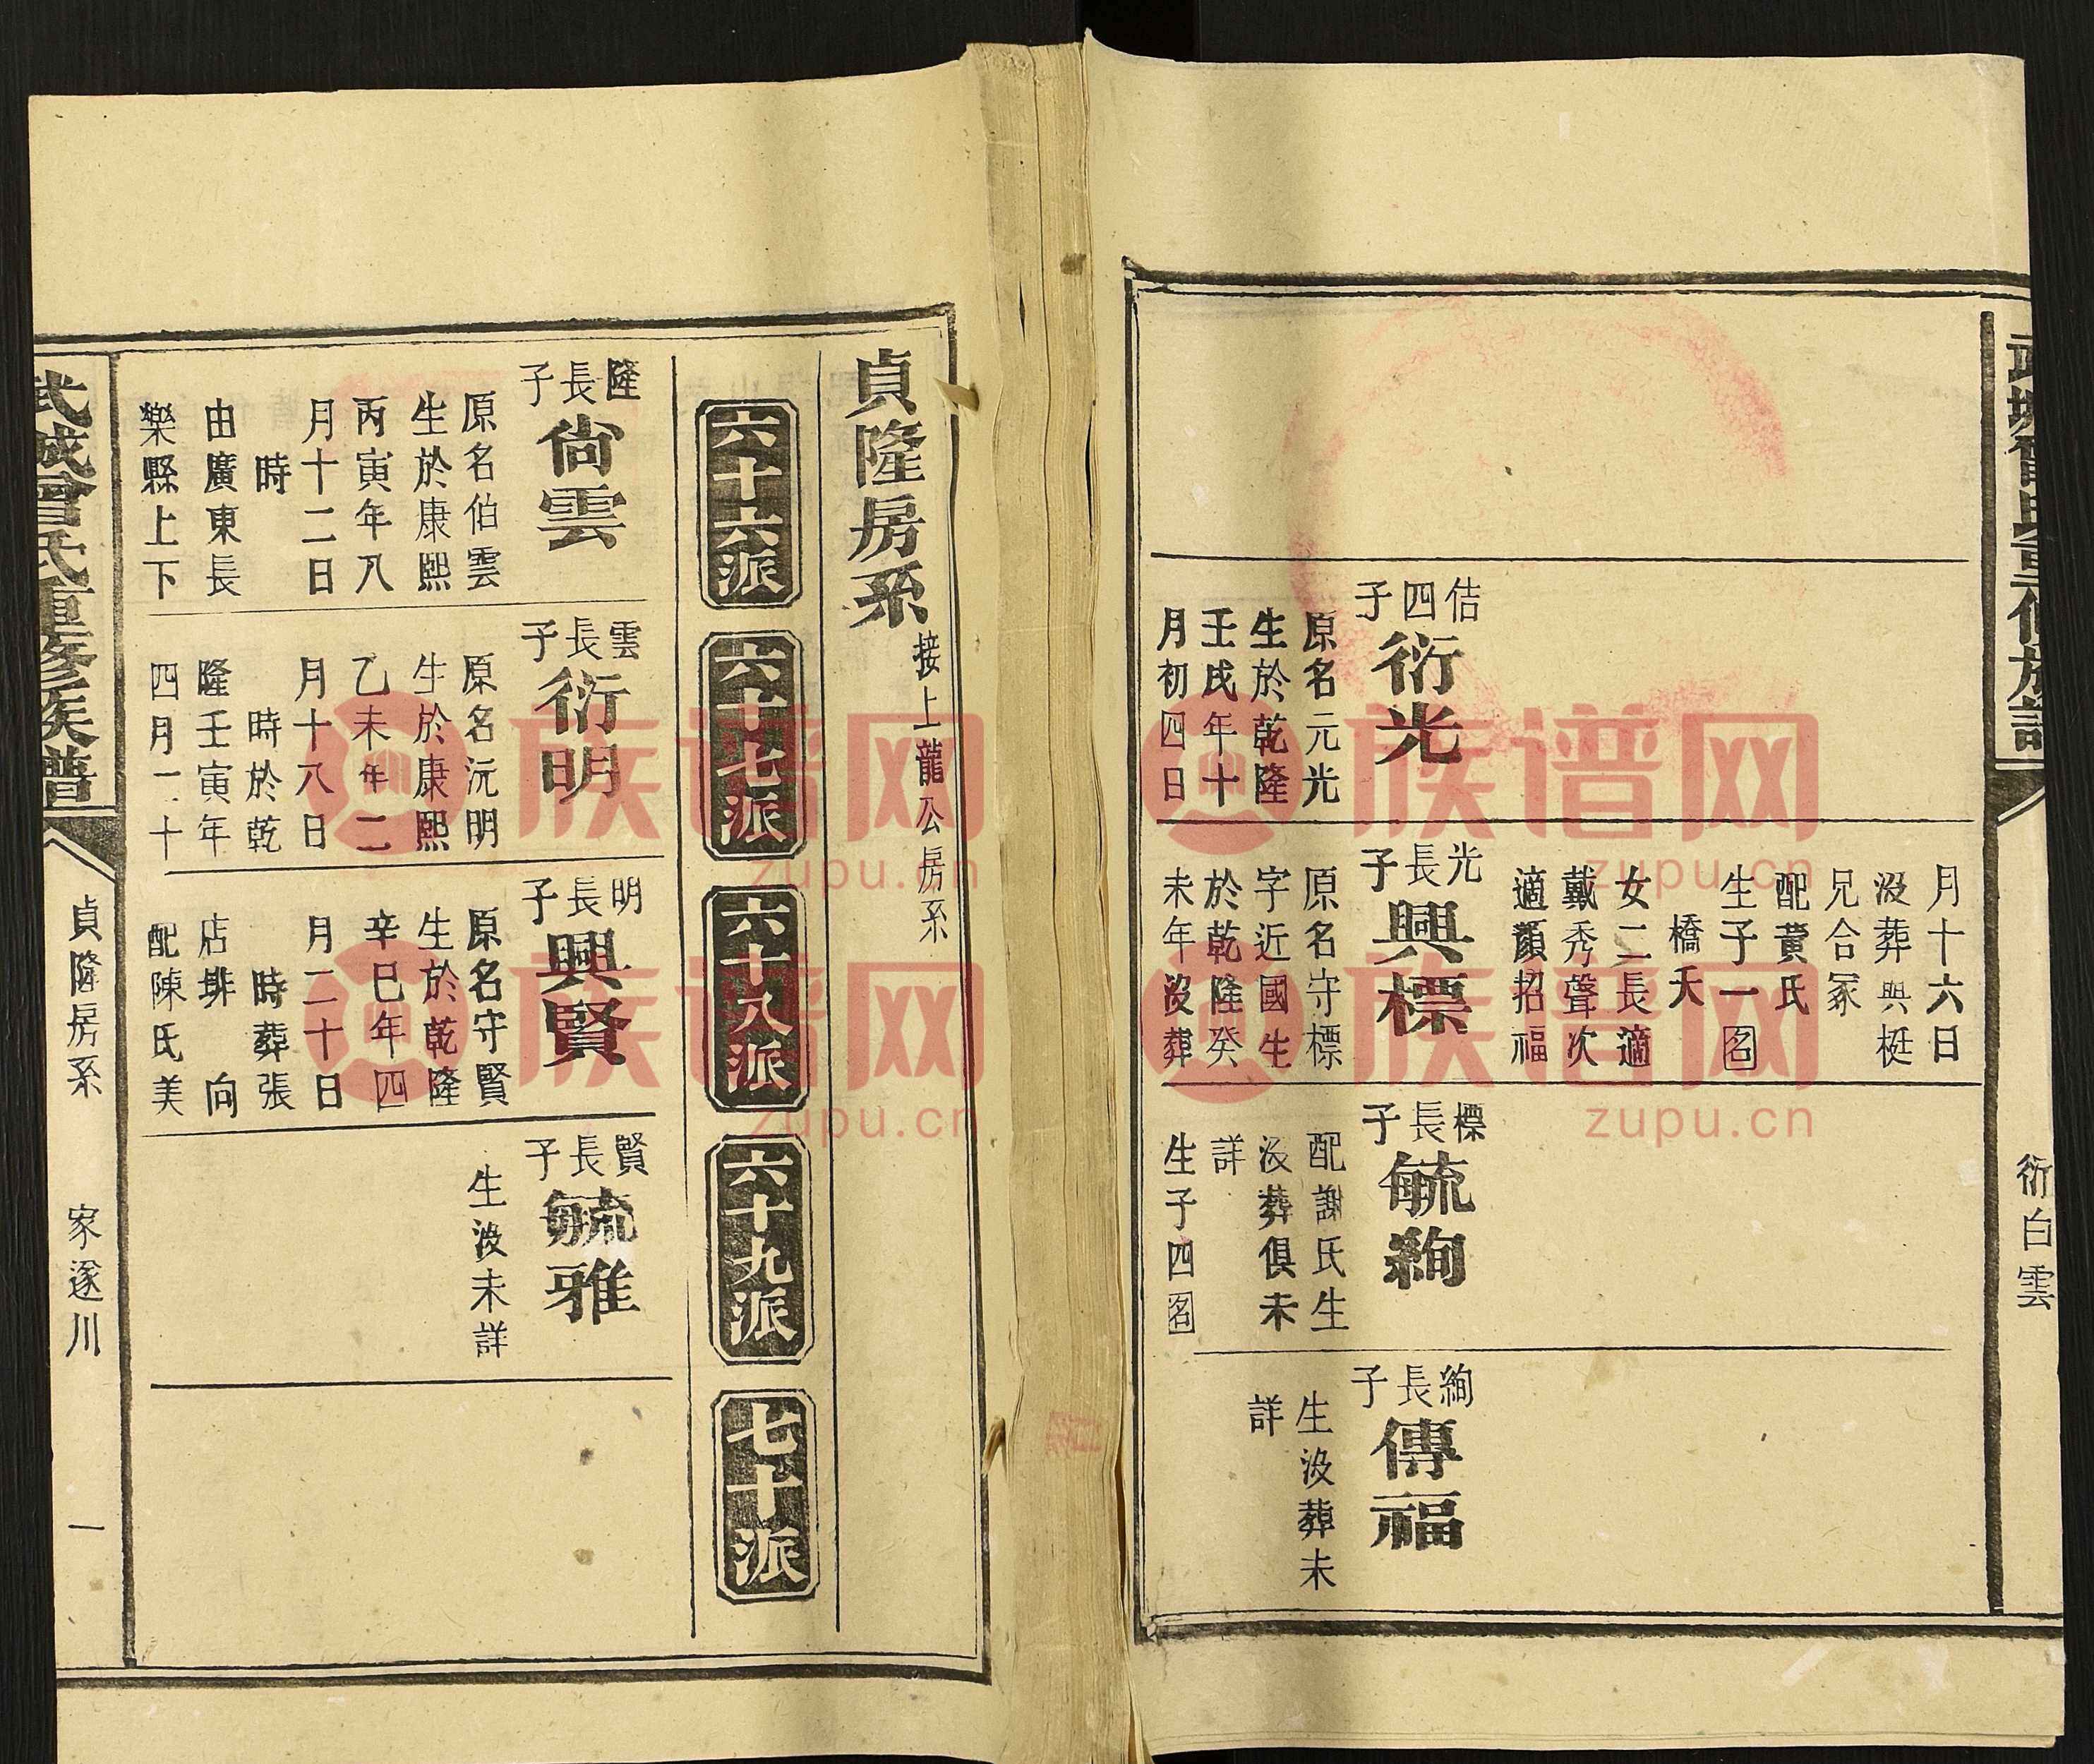 武城曾氏重修族譜
衍白雲
月十六日
沒葬興梃
兄合冢
配黄氏
生子一名
橋夭
女二長適
戴秀聲次
適顏招福
佶四子
衍光
原名元光
生於乾隆
壬戌年十
月初四日
光長子
興標
原名守標
字近國生
於乾隆癸
未年沒葬
標長子
毓絢
配謝氏生
沒葬俱未
詳
生子四名
絢長子
傳福
生沒葬未
詳
貞隆房系
接上龍公房系
六十六派
六十七派
六十八派
六十九派
七十派
隆長子
尙雲
原名伯雲
生於康熙
丙寅年八
月十二日
時
由廣東長
樂縣上下
雲長子
衍明
原名沅明
生於康熙
乙未年二
月十八日
時於乾
隆壬寅年
四月二十
明長子
興賢
原名守賢
生於乾隆
辛巳年四
月二十日
時葬張
店排 向
配陳氏美
賢長子
毓雅
生沒未詳
武城曾氏重修族譜
貞隆房系
家遂川
一
族谱网
zupu.cn
族谱网
zupu.cn
族谱网
zupu.cn
族谱网
zupu.cn